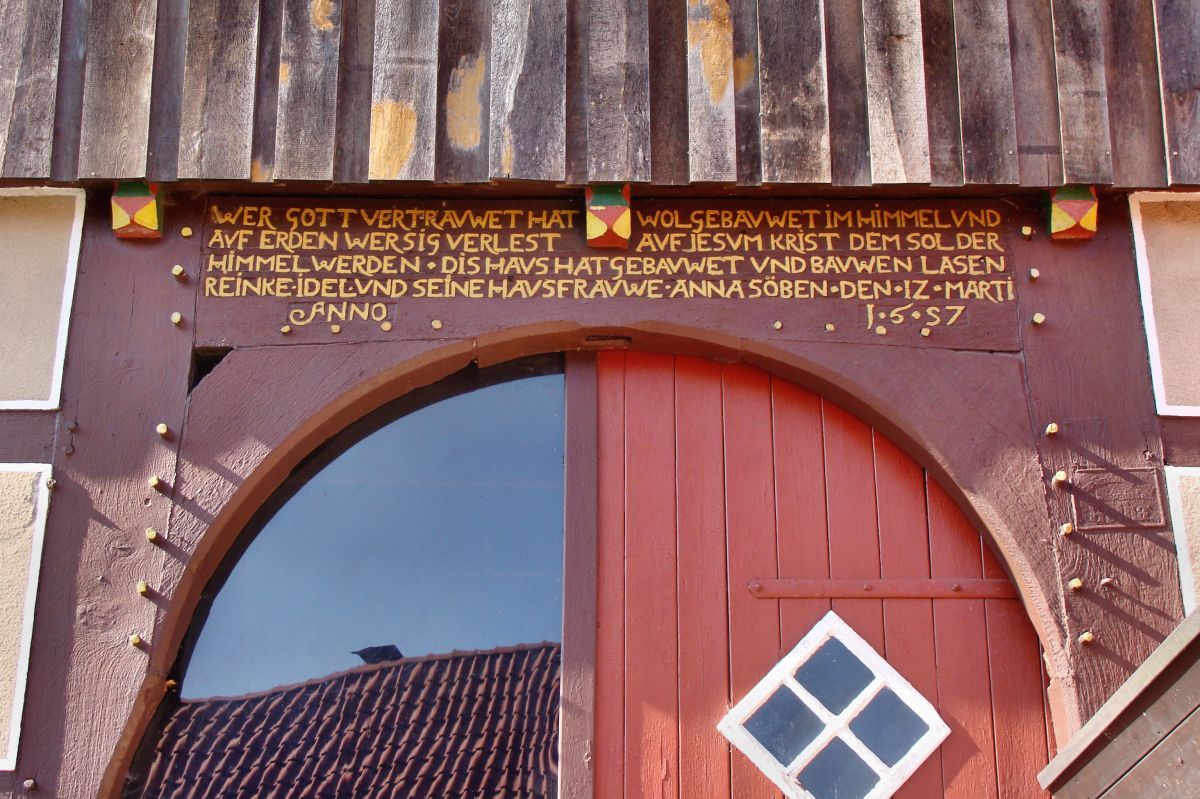 WER GOTT VERTRAVWET HAT WOLGEBAVWET IM HIMMEL VND
AVF ERDEN WER SIG VERLEST AVF JESVM KRIST DEM SOL DER
HIMMEL WERDEN · DIS HAVS HAT GEBAVWET VND BAVWEN LASEN
REINKE · IDEL VND SEINE HAVSFRAVWE · ANNA SÖBEN · DEN · 1Z · MARTI
ANNO 1 · 6 · 97